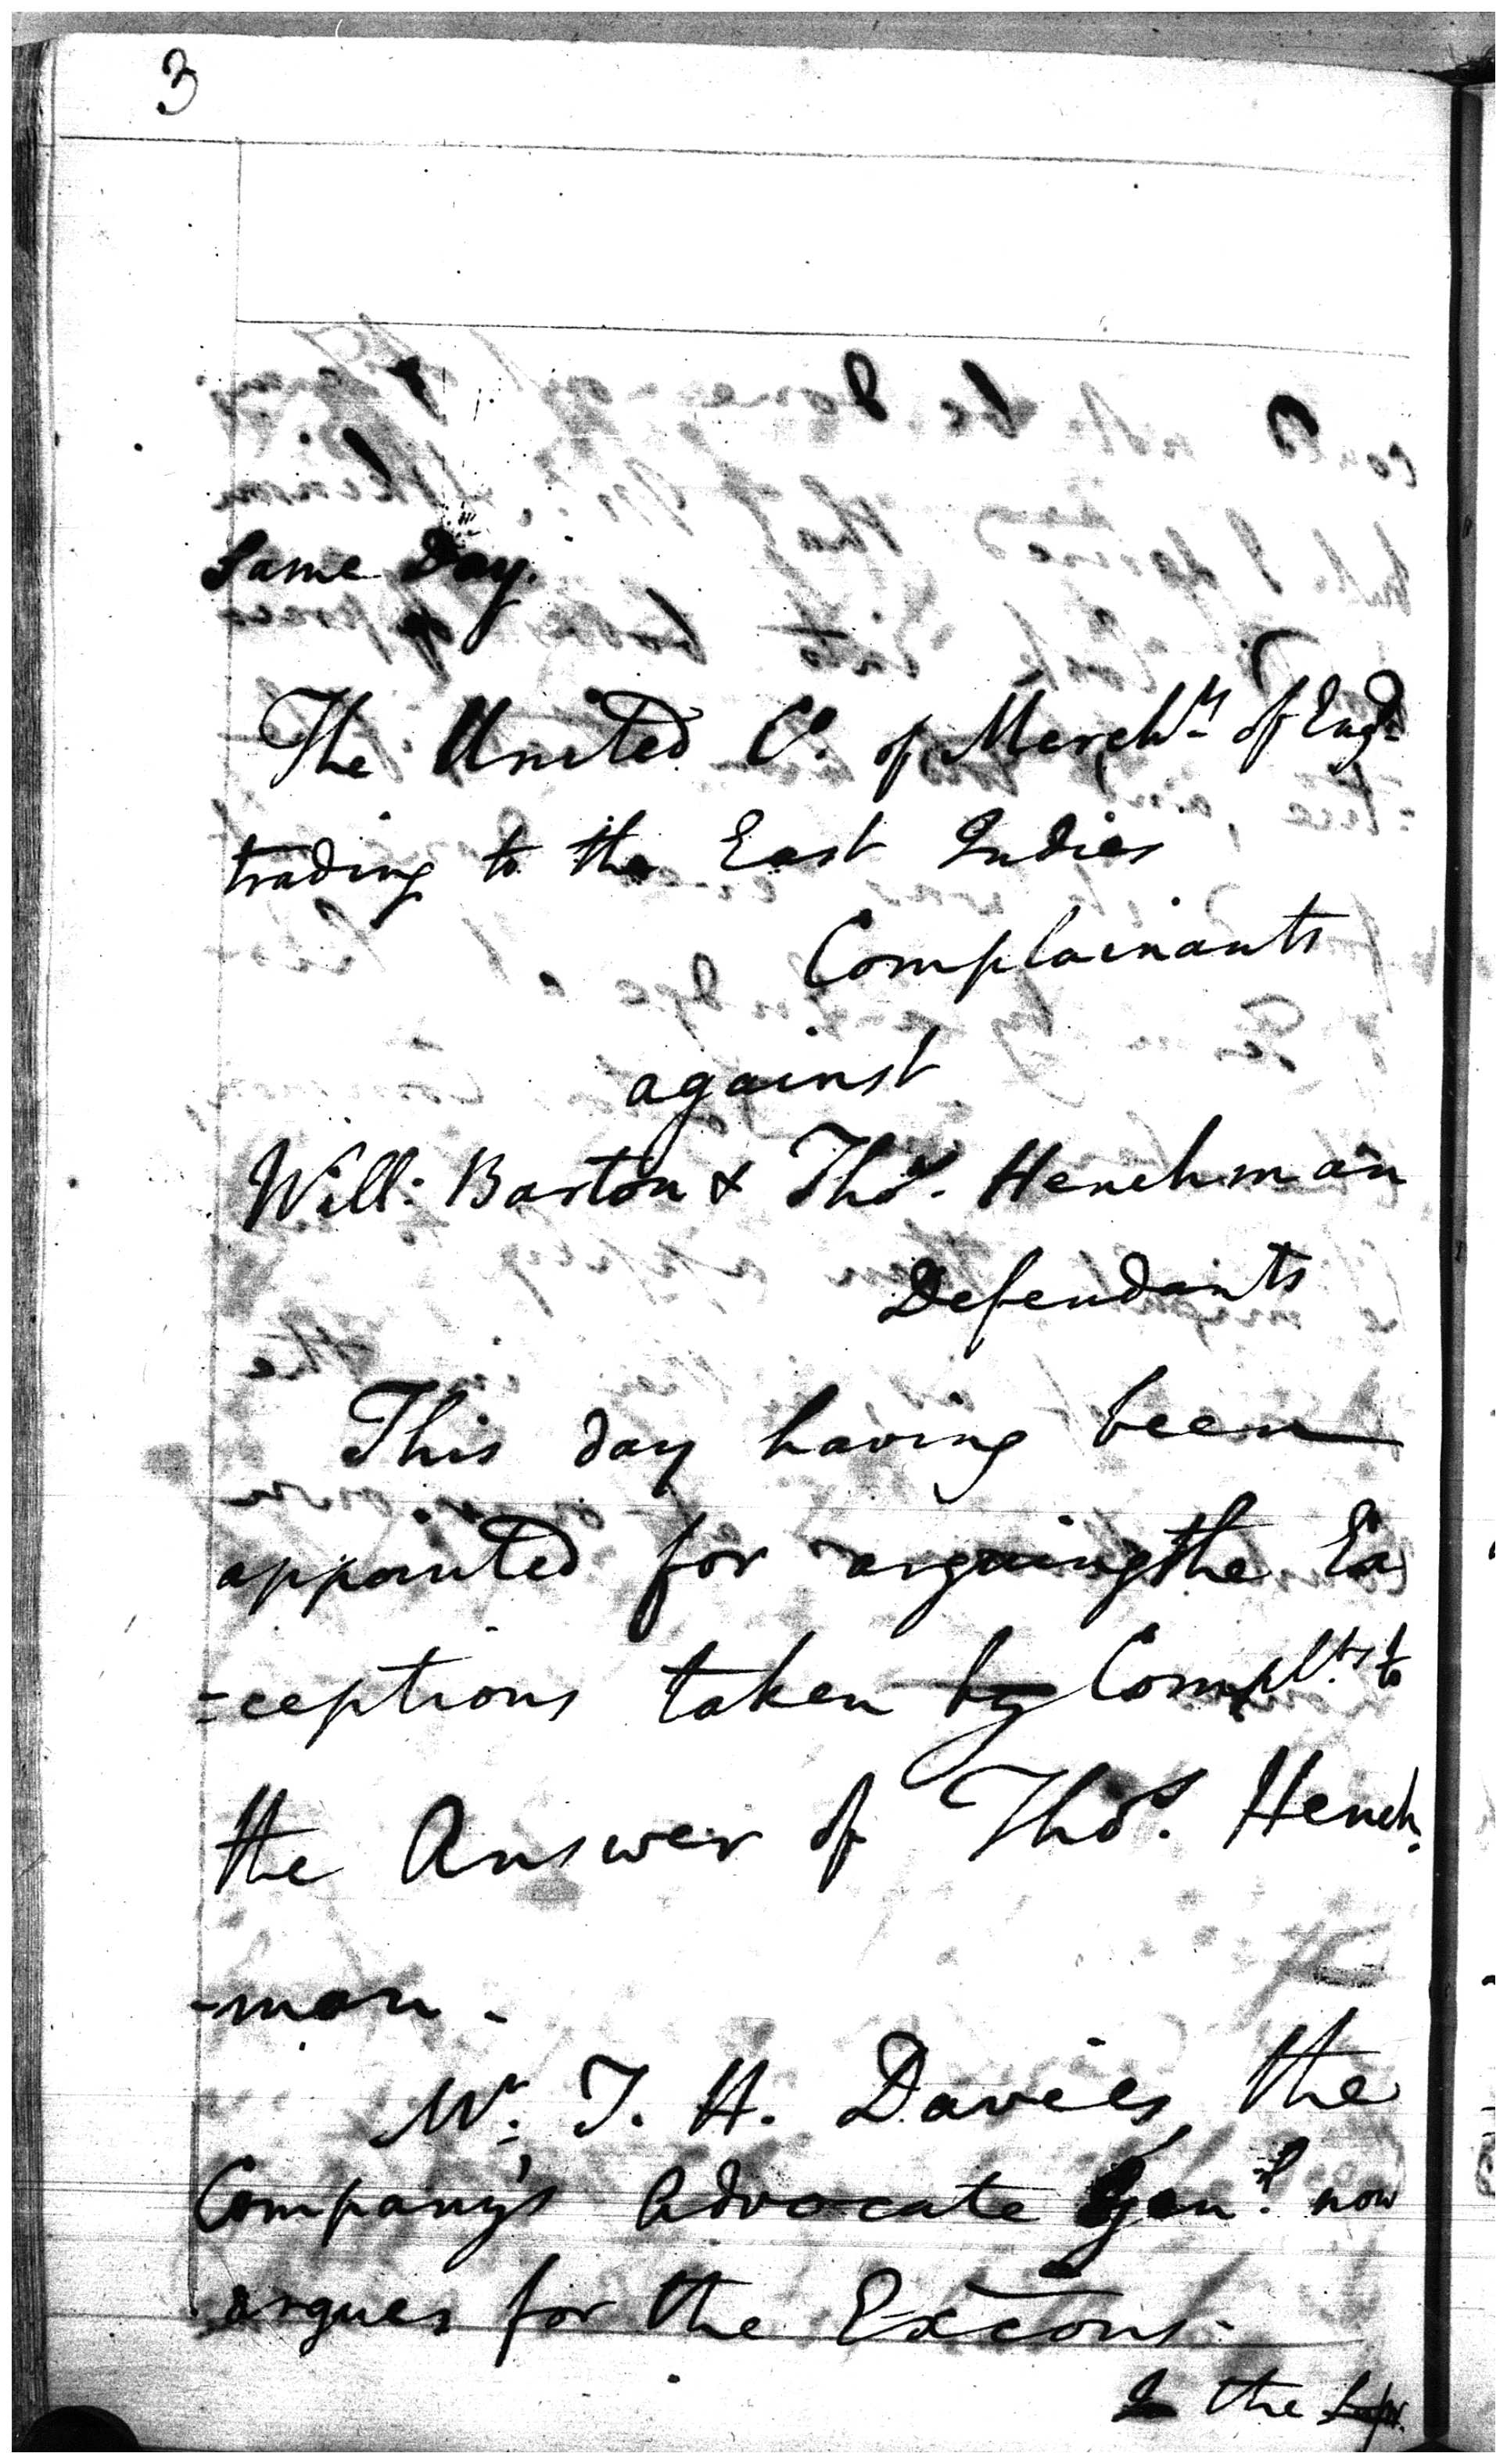 3
Same Day.
The United Co. of Mercht. of Engd.
trading to the East Indies
Complainants
against
Will: Barton & Thos. Henchman
Defendants
This day having been
appointed for arguing the Ex
-ceptions taken by Complts. to
the Answer of Thos. Hench.
-man -
Mr. T. H. Davies, the
Company's Advocate Genl. now
argues for the Excons.
the